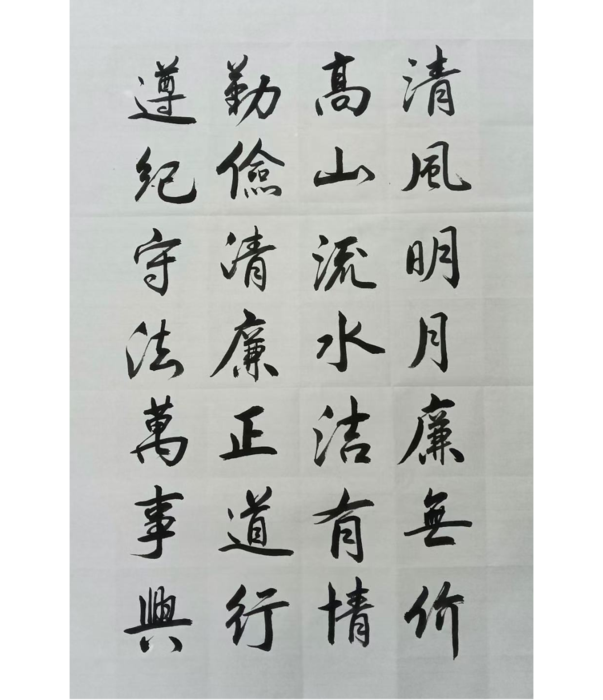 清風明月廉無价
高山流水洁有情
勤儉清廉正道行
遵紀守法萬事興